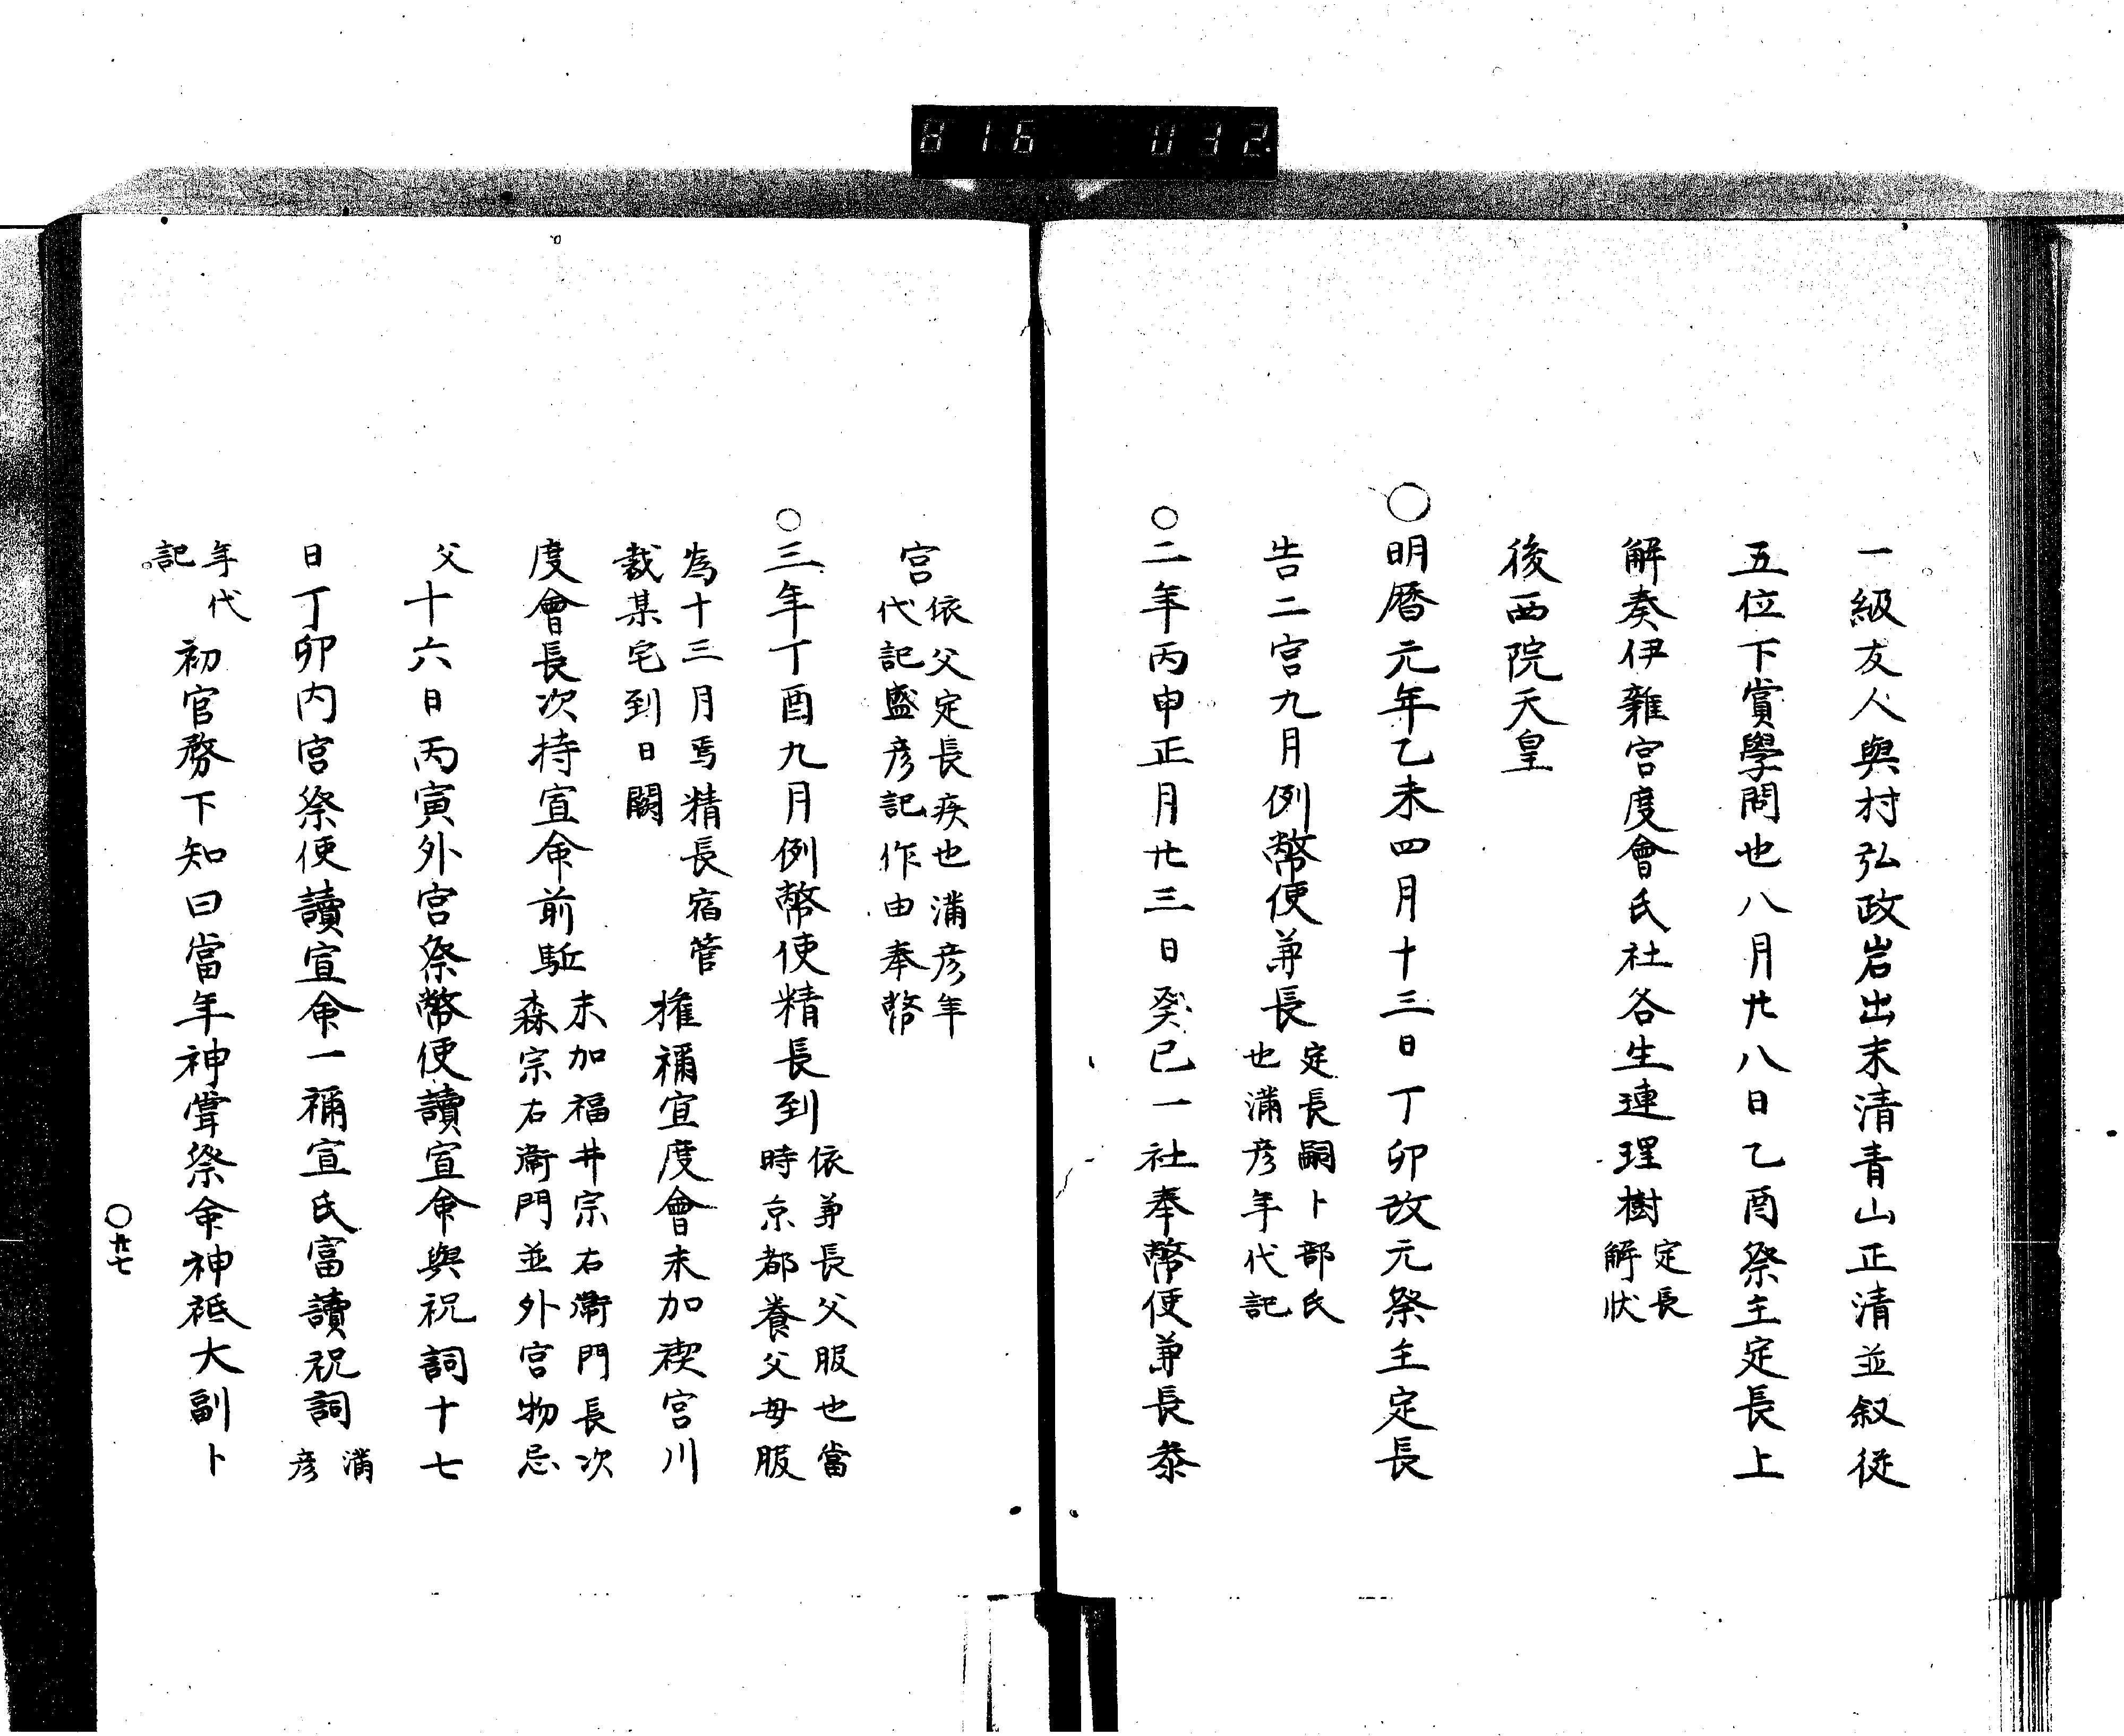 816 032
一級友人與村弘政岩出末清青山正清並叙従
五位下賞學問也八月廿八日乙酉祭主定長上
解奏伊雜宮度會氏社各生連理樹定長
解状
後西院天皇
○明暦元年乙未四月十三日丁卯改元祭主定長
告二宮九月例幣使兼長定長嗣卜部氏
也満彦年代記
○二年丙申正月廿三日癸巳一社奉幣使兼長参
宮依父定長疾也満彦年
代記盛彦記作由奉幣
○三年丁酉九月例幣使精長到依兼長父服也當
時京都養父母服
為十三月焉精長宿管
裁某宅到日闕
権禰宜度會末加禊宮川
度會長次持宣命前駈末加福井宗右衛門長次
森宗右衛門並外宮物忌
父十六日丙寅外宮祭幣使讀宣命與祝詞十七
日丁卯内宮祭使讀宣命一禰宜氏富讀祝詞満
彦
年代
記
初官務下知曰當年神嘗祭命神祗大副卜
○廿七